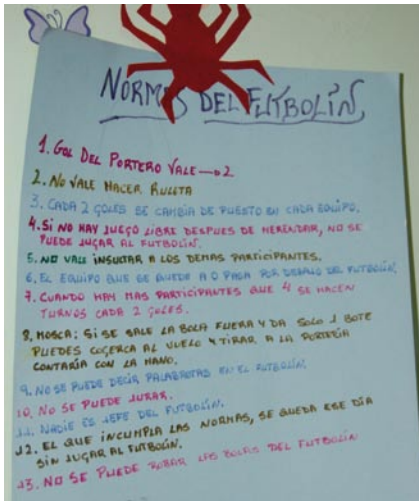 NORMAS DEL FUTBOLÍN
1. GOL DEL PORTERO VALE → 2
2. NO VALE HACER RULETA
3. CADA 2 GOLES SE CAMBIA DE PUESTO EN CADA EQUIPO.
4. SI NO HAY JUEGO LIBRE DESPUES DE MERENDAR, NO SE
PUEDE JUGAR AL FUTBOLIN.
5. NO VALE INSULTAR A LOS DEMAS PARTICIPANTES.
6. EL EQUIPO QUE SE QUEDE A 0 PASA POR DEBAJO DEL FUTBOLIN.
7. CUANDO HAY MAS PARTICIPANTES QUE 4 SE HACEN
TURNOS CADA 2 GOLES.
8. MOSCA: SI SE SALE LA BOLA FUERA Y DA SOLO 1 BOTE
PUEDES COGERLA AL VUELO Y TIRAR A LA PORTERÍA
CONTARÍA CON LA MANO.
9. NO SE PUEDE DECIR PALABROTAS EN EL FUTBOLIN.
10. NO SE PUEDE JURAR.
11. NADIE ES JEFE DEL FUTBOLIN.
12. EL QUE INCUMPLA LAS NORMAS, SE QUEDA ESE DÍA
SIN JUGAR AL FUTBOLIN.
13. NO SE PUEDE ROBAR LAS BOLAS DEL FUTBOLIN